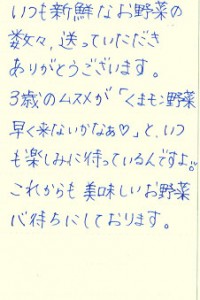 いつも新鮮なお野菜の
数々、送っていただき
ありがとうございます。
3歳のムスメが「くまモン野菜
早く来ないかなぁ♡」と、いつ
も楽しみに待っているんですよ。
これからも美味しいお野菜
心待ちにしております。